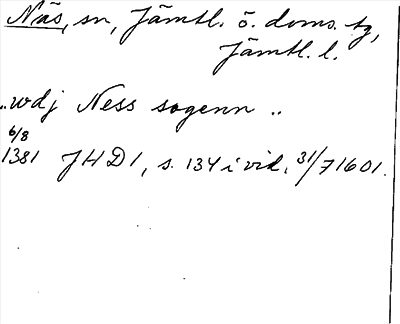 Näs, sn, Jämtl. ö. doms. tg,
Jämtl. l.
..wdj Ness sogenn ..
6/8
1381 JHD1, s. 134 i vid. 31/7 1601.